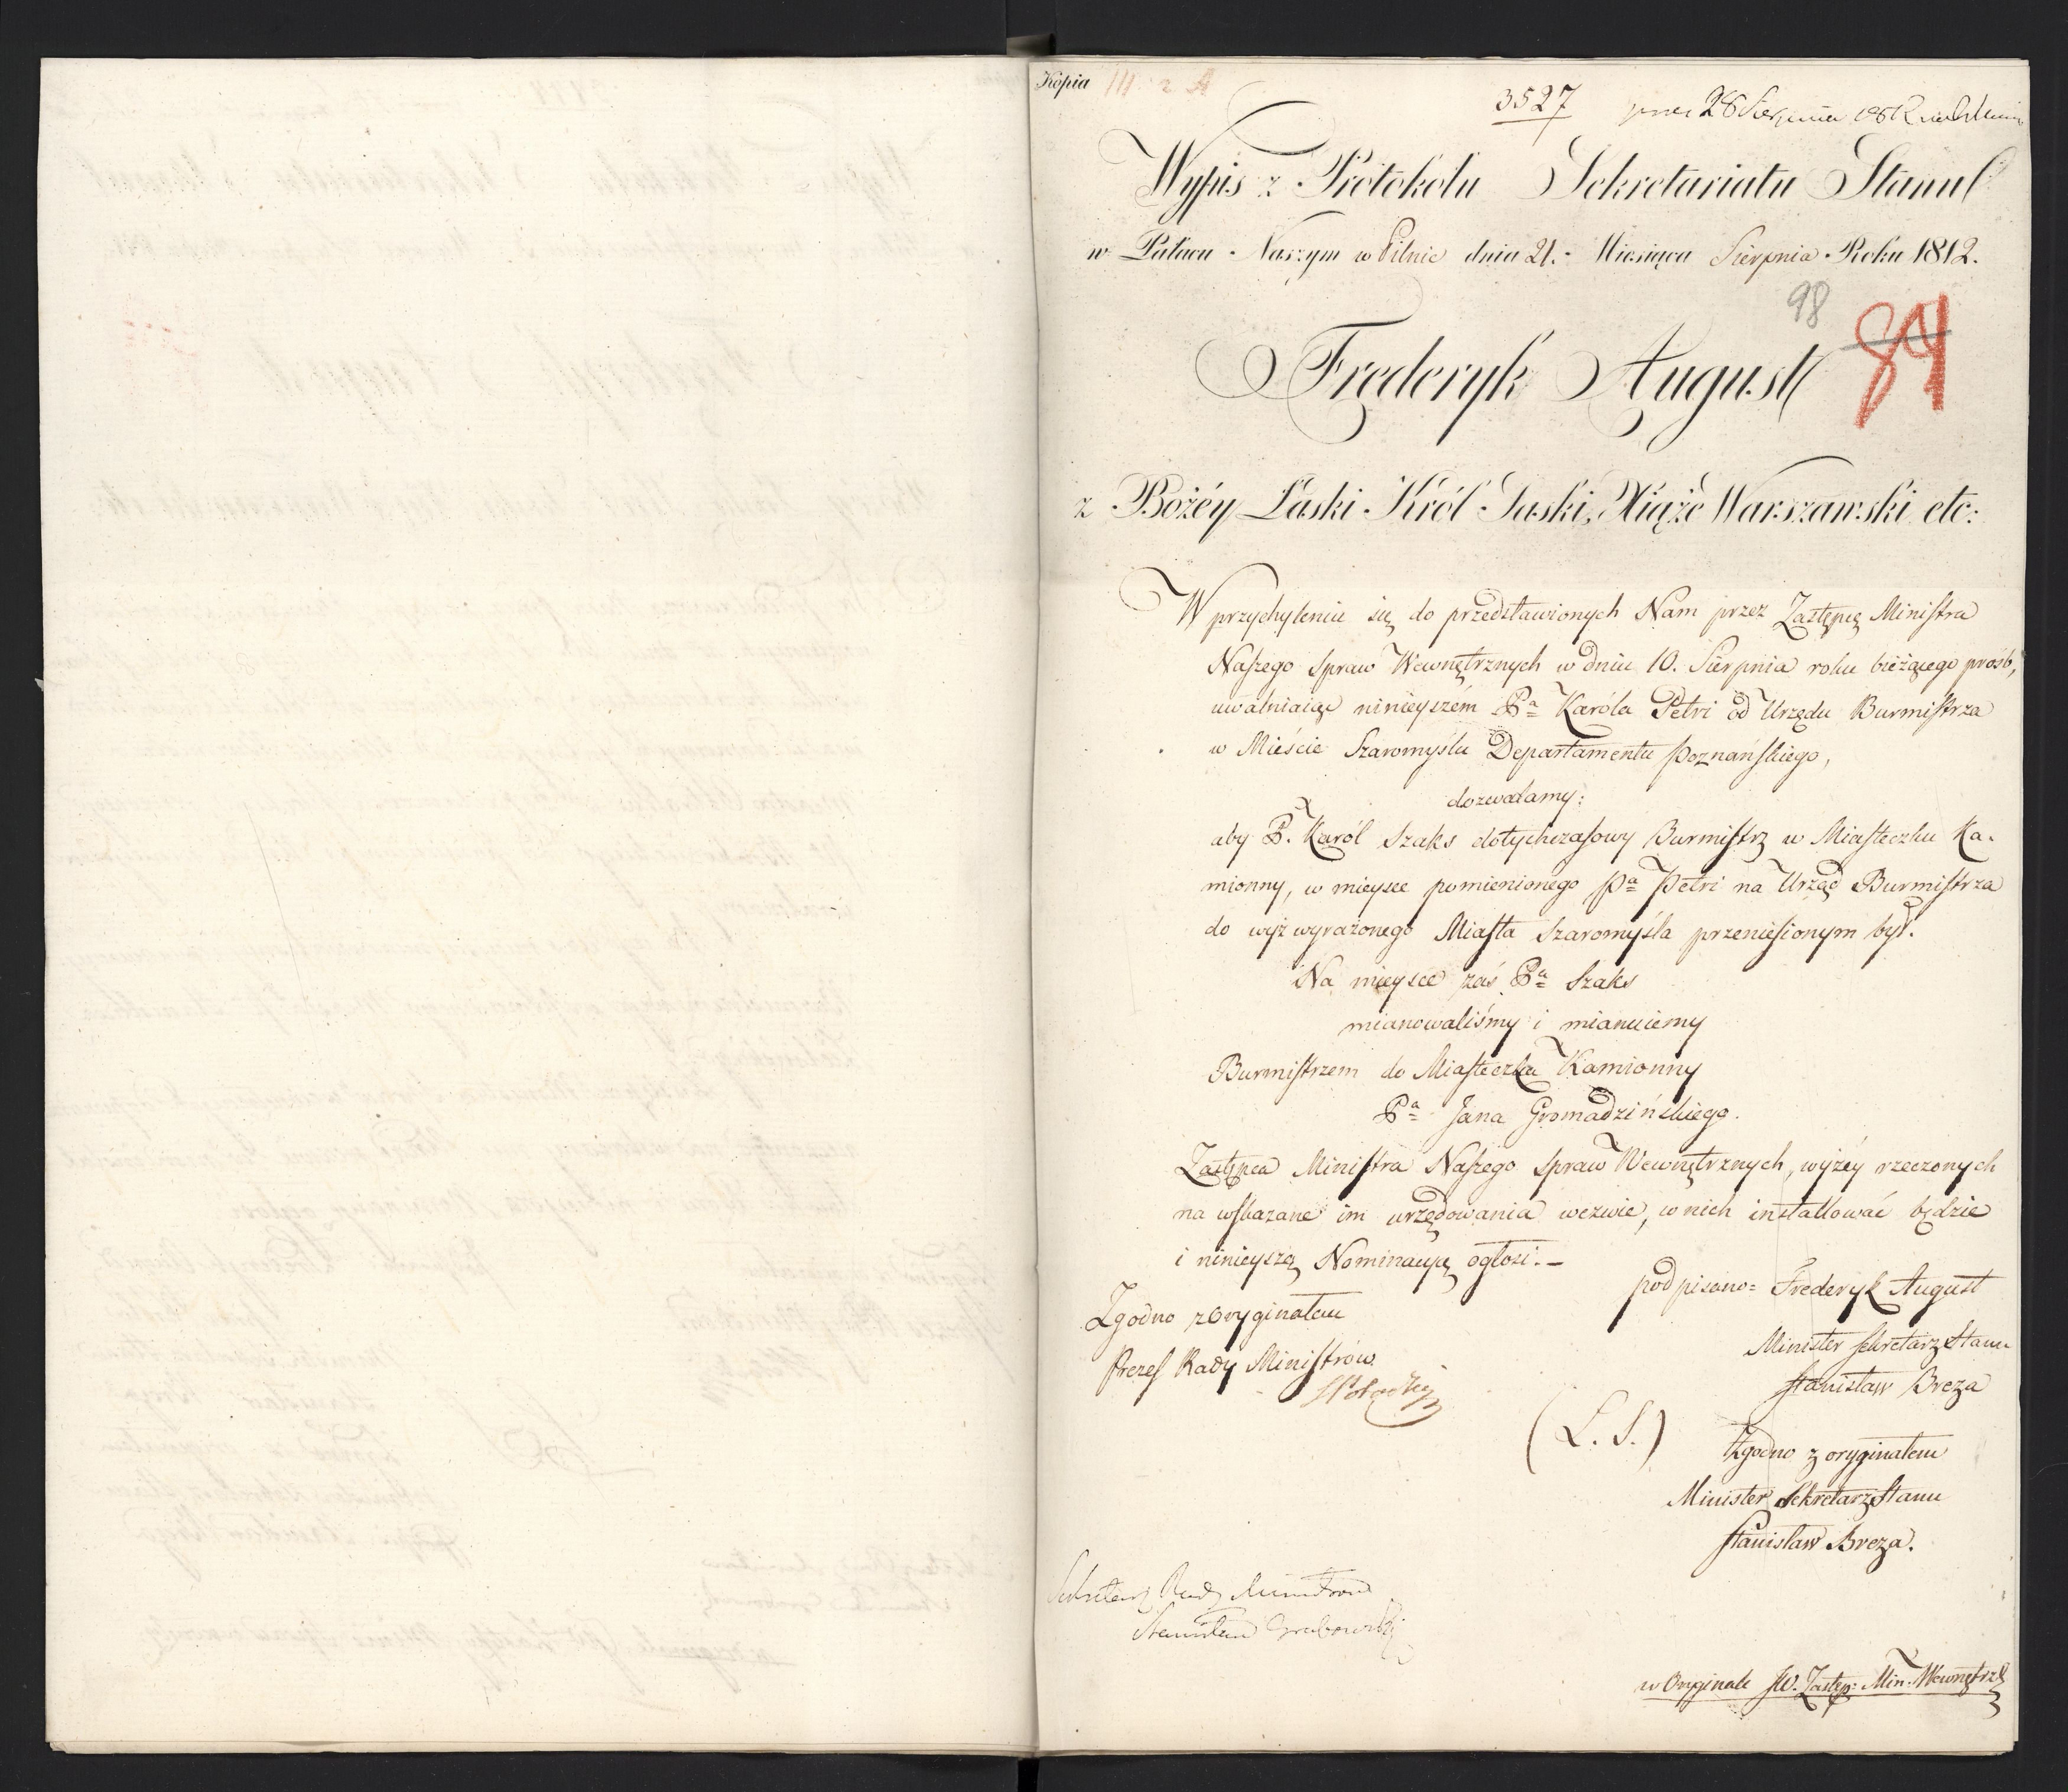 Kopia
3527
28 Sierpnia 1812
Wypis z Protokołu Sekretariatu Stanu
w Pałacu Naszym w Pilnic dnia 21. Miesiąca Sierpnia Roku 1812.
98
84
Frederyk August
z Bożéy Łaski Król Saski, Xiążę Warszawski etc:
W przychyleniu się do przedstawionych Nam przez Zastępcę Ministra
Naszego Spraw Wewnętrznych w dniu 10. Sierpnia roku bieżącego prośb,
uwalniaiąc ninieyszém Pa Karóla Petri od Urzędu Burmistrza
w Mieście Szaromyślu Departamentu Poznańskiego,
dozwalamy:
aby P. Karól Szaks dotychczasowy Burmistrz w Miasteczku Ka-
mionny, w mieysce pomienionego Pa Petri na Urząd Burmistrza
do wyż wyrażonego Miasta Szaromyśla przeniesionym był.
Na mieysce zaś Pa Szaks
mianowaliśmy i mianuiemy
Burmistrzem do Miasteczka Kamionny
Pa Jana Gromadzińskiego.
Zastępca Ministra Naszego Spraw Wewnętrznych, wyżéy rzeczonych
na wskazane im urzędowania wezwie, w nich installować będzie
i ninieyszą Nominacyę ogłosi.-
podpisano= Frederyk August
Minister Sekretarz Stanu
Stanisław Breza
Zgodno z Oryginałem
Prezes Rady Ministrów
(L. S.)
Zgodno z oryginałem
Minister Sekretarz Stanu
Stanisław Breza.
Sekretarz Rady Ministrów
Stanisław Grabowski
w Oryginale JW. Zastęp: Min: Wewnętrz: